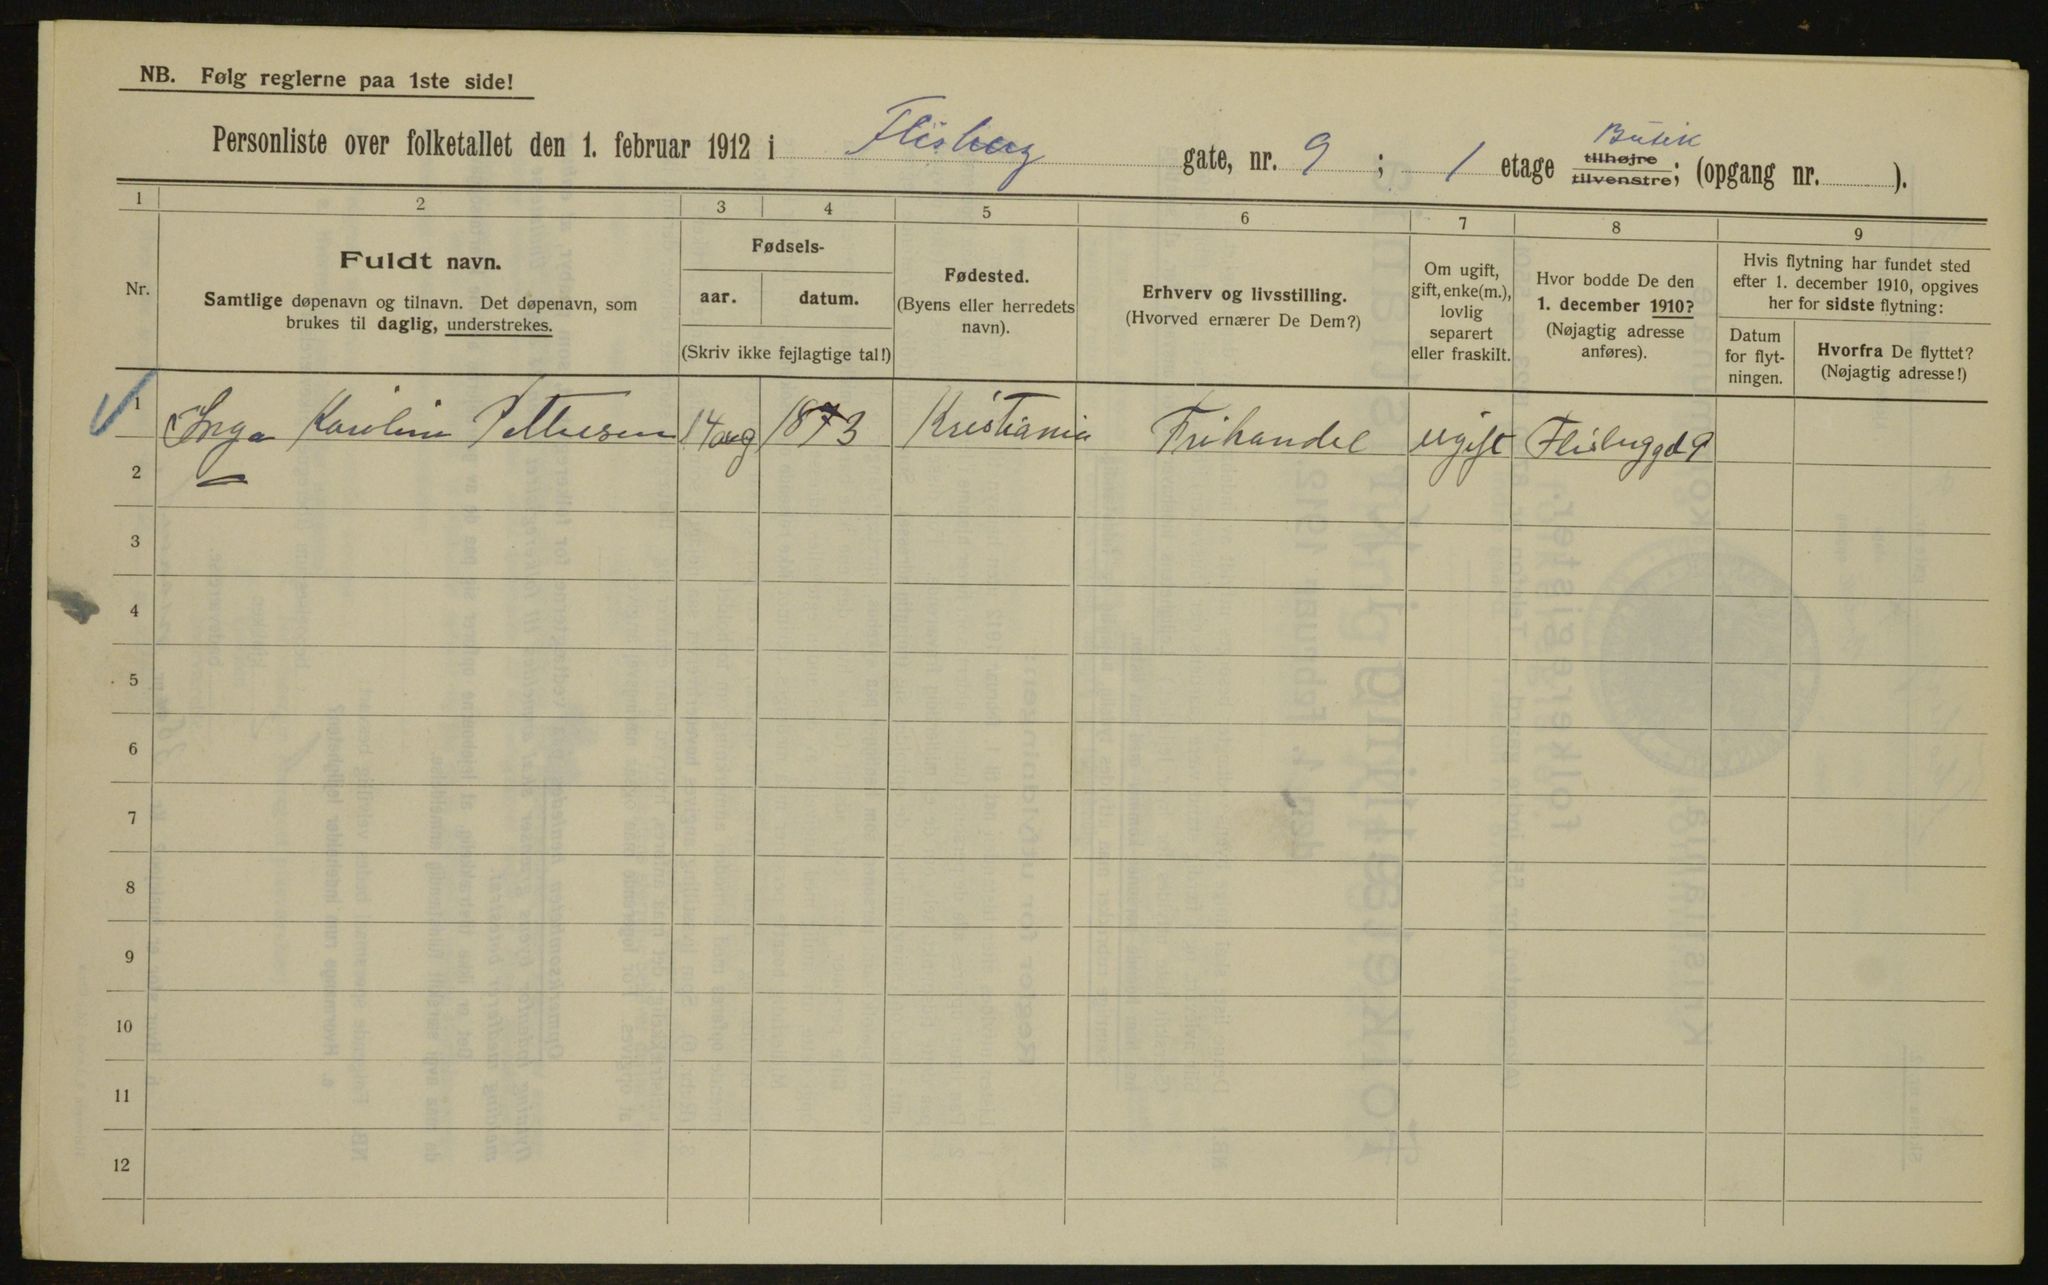 NB. Følg reglerne paa 1ste side!
Personliste over folketallet den 1. februar 1912 i Flisberg gate, nr. 9 ; 1 etage Butik tilhøjre tilvenstre; (opgang nr. ).
1 2 3 4 5 6 7 8 9
Nr.
Fuldt navn.
Samtlige døpenavn og tilnavn. Det døpenavn, som
brukes til daglig, understrekes.
Fødsels-
aar. datum.
(Skriv ikke fejlagtige tal!)
Fødested.
(Byens eller herredets
navn).
Erhverv og livsstilling.
(Hvorved ernærer De Dem?)
Om ugift,
gift, enke(m.),
lovlig
separert
eller fraskilt.
Hvor bodde De den
1. december 1910?
(Nøjagtig adresse
anføres).
Hvis flytning har fundet sted
efter 1. december 1910, opgives
her for sidste flytning:
Datum
for flyt-
ningen.
Hvorfra De flyttet?
(Nøjagtig adresse!)
1 Inga Karoline Pettersen 14 aug 1873 Kristiania Frihandel ugift Flisbyggd 9
2
3
4
5
6
7
8
9
10
11
12